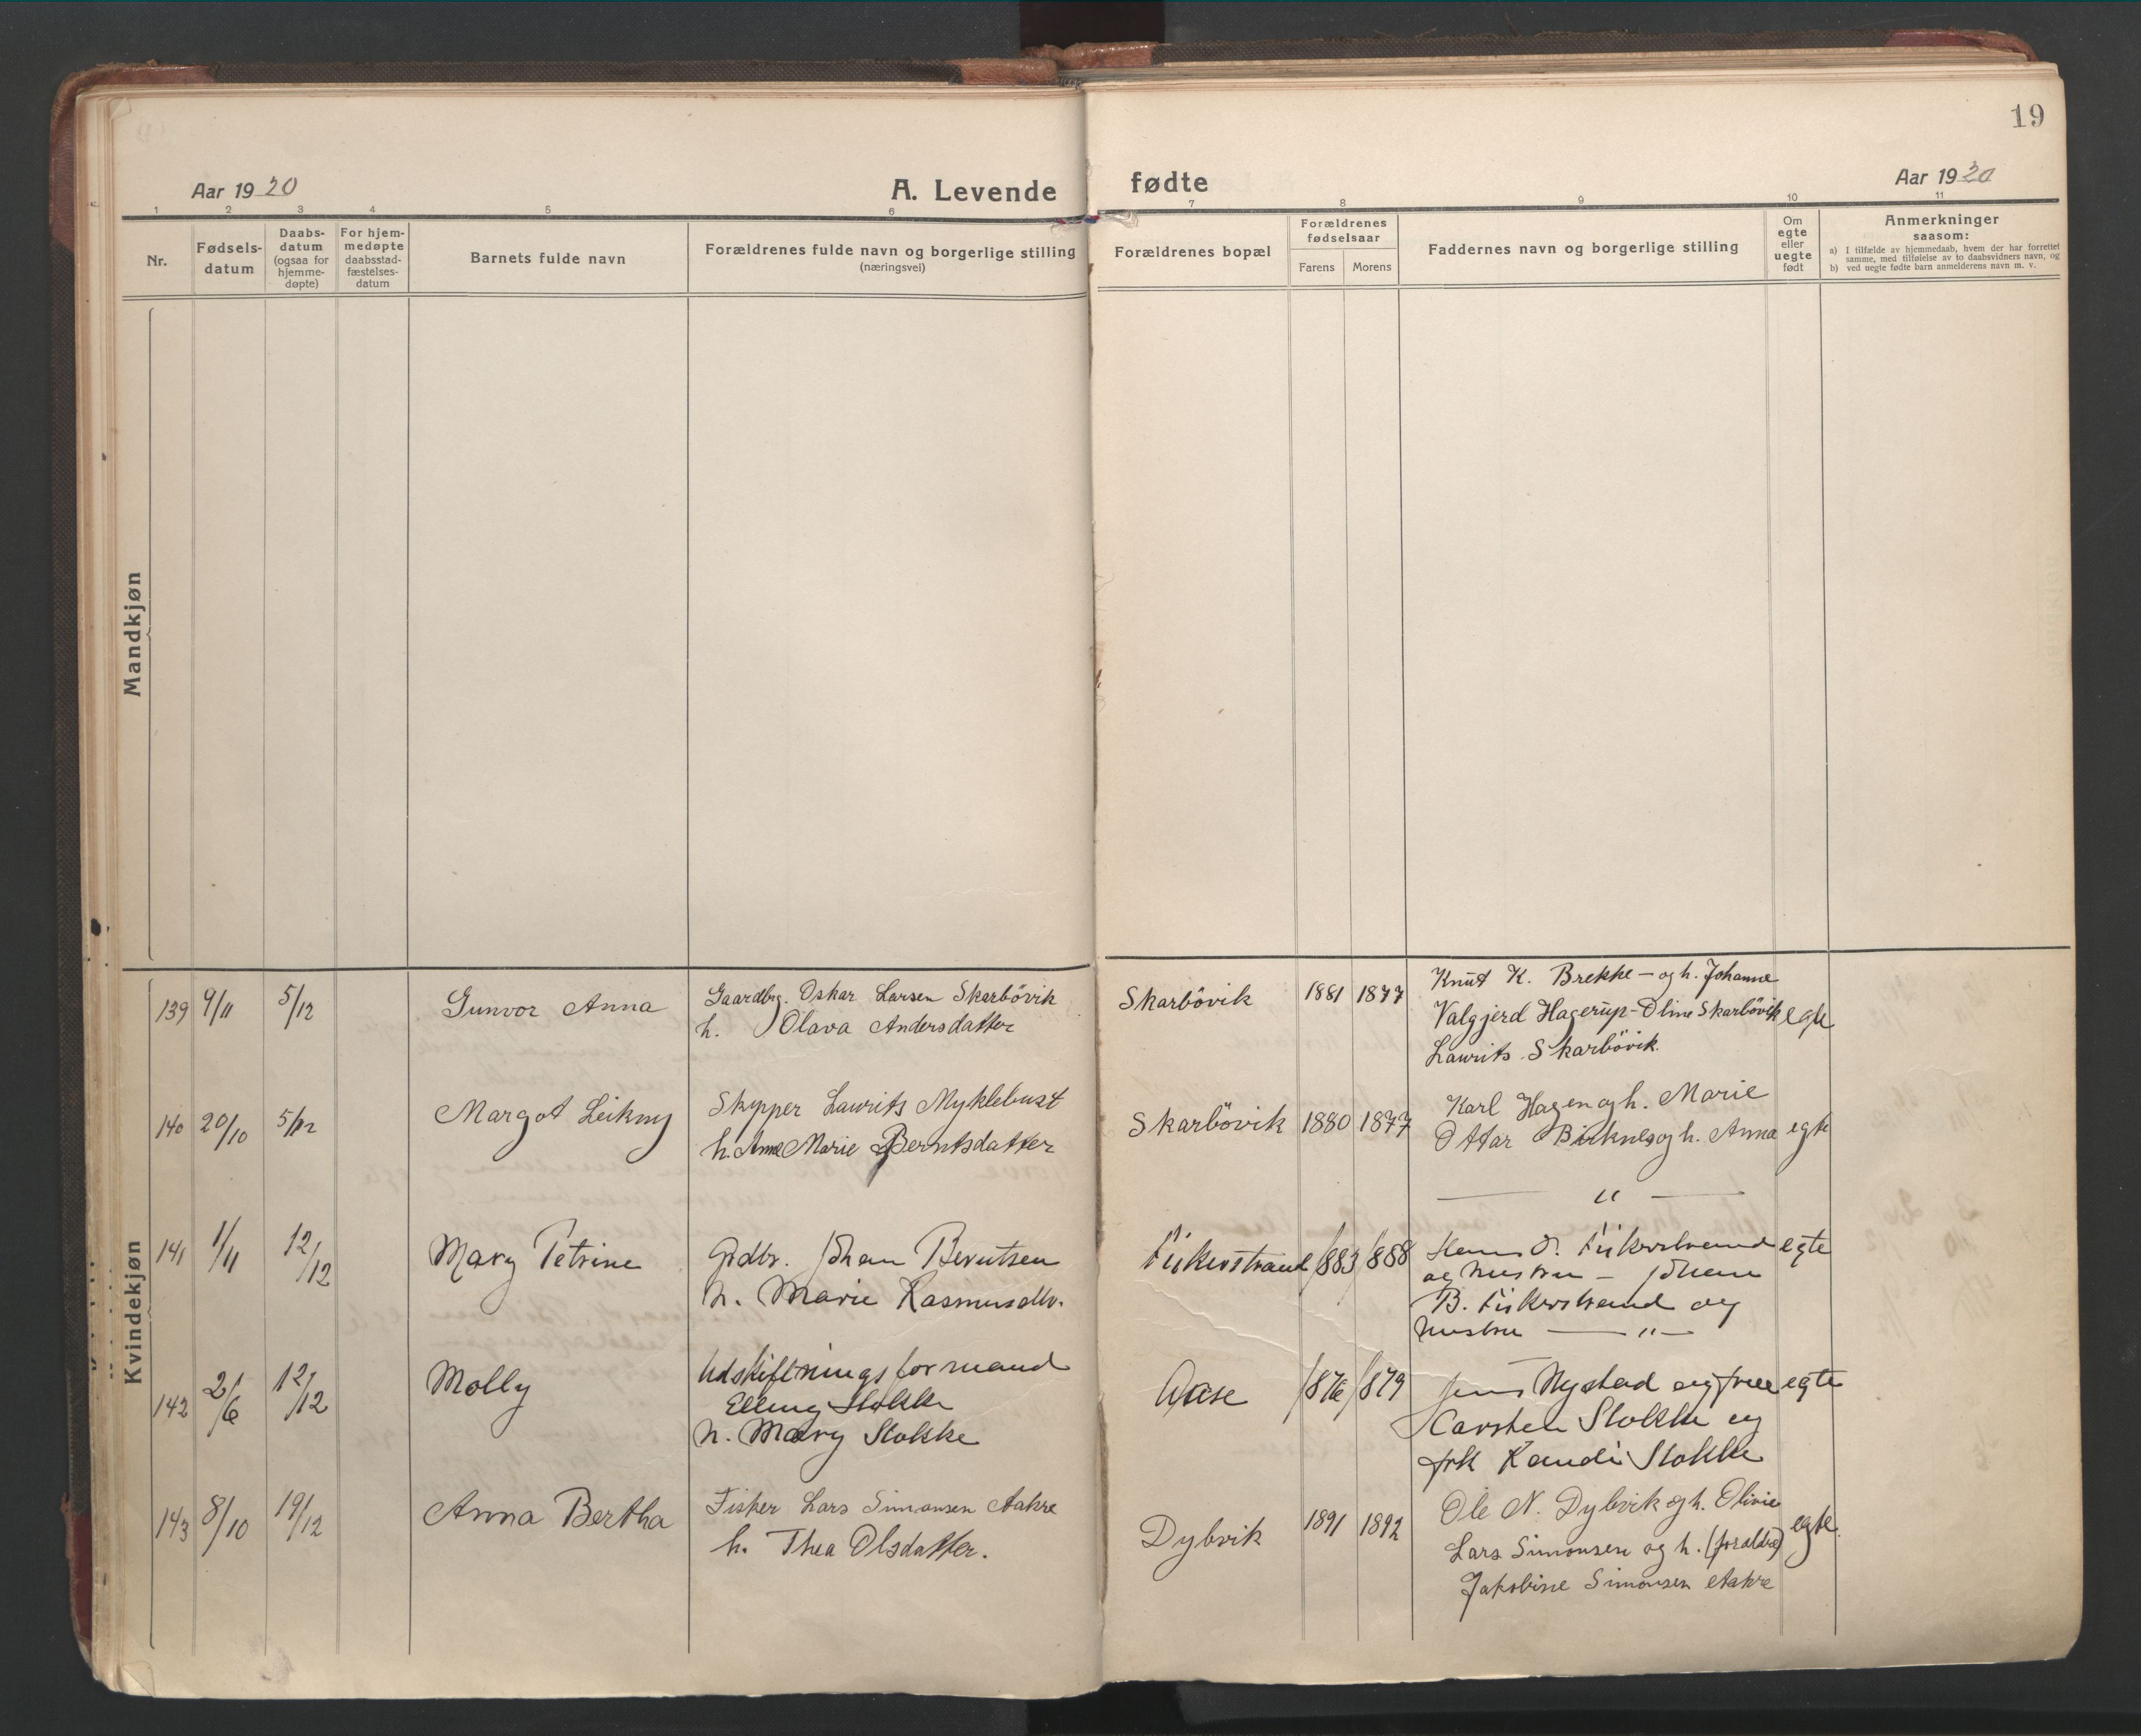 19
Aar 1920
A. Levende fødte
Aar 1920
1 2 3 4 5 6 7 8 9 10 11
Nr.
Fødsels-
datum
Daabs-
datum
(ogsaa for
hjemme-
døpte)
For hjem-
medøpte
daabsstad-
fæstelses-
datum
Barnets fulde navn
Forældrenes fulde navn og borgerlige stilling
(næringsvei)
Forældrenes bopæl
Forældrenes
fødselsaar
Farens Morens
Faddernes navn og borgerlige stilling
Om
egte
eller
uegte
født
Anmerkninger
saasom:
a) I tilfælde av hjemmedaab, hvem der har forrettet
samme, med tilføielse av to daabsvidners navn, og
b) ved uegte fødte barn anmelderens navn m. v.
Mandkjøn
Kvindekjøn
139 9/11 5/12
Gunvor Anna
Gaardbrg. Oskar Larsen Skarbövik
h. Olava Andersdatter
Skarbövik
1881 1877
Knut K. Brekke - og h. Johanne
Valgjerd Hagerup - Oline Skarbövik
Laurits Skarbövik.
egte
140 20/10 5/12
Margot Leikny
Skipper Laurits Myklebust
h. Anne Marie Berntsdatter
Skarbövik
1880 1877
Karl Hagen og h. Marie
Ottar Birknes og h. Anna
— " —
egte
141 1/11 12/12
Mary Petrine
Grdbr. Johan Berntsen
h. Marie Rasmusdtr.
Fiskerstrand
1883 1888
Hans O. Fiskerstrand
og hustru - Johan
B. Fiskerstrand og
hustru — " —
egte
142 2/6 12/12
Molly
Udskiftningsformand
Elling Stokke
h. Mary Stokke
Aase
1876 1879
Jens Nystad og frue
Karsten Stokke og
frk Randi Stokke
egte
143 8/10 19/12
Anna Bertha
Fisker Lars Simonsen Aakre
h. Thea Olsdatter.
Dybvik
1891 1892
Ole N. Dybvik og h. Olivie
Lars Simonsen og h. (foraldre)
Jakobine Simonsen Aakre
egte.